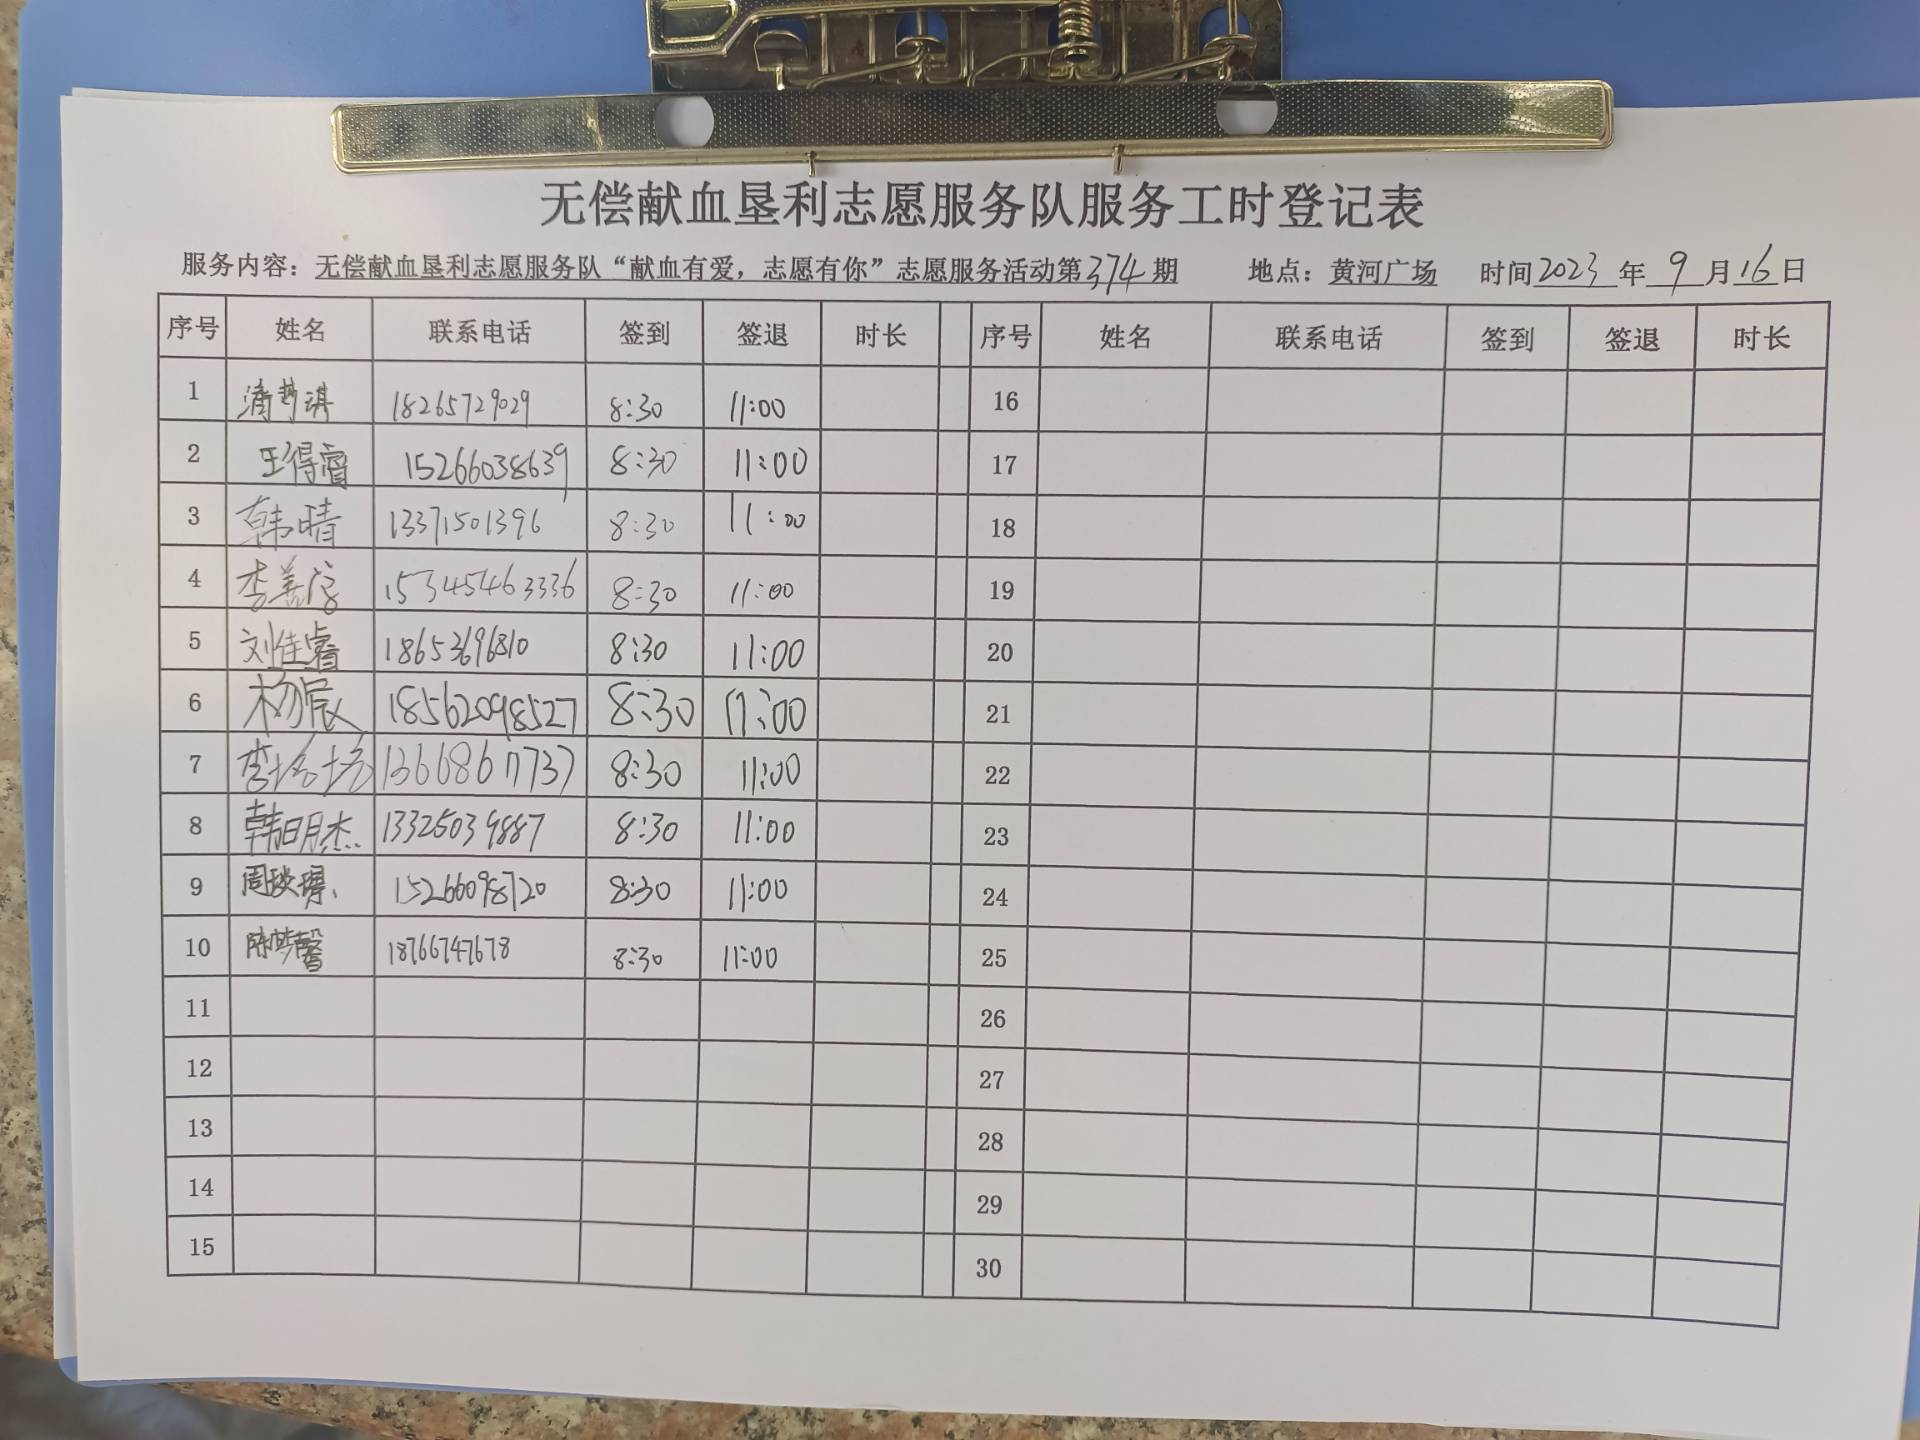 无偿献血垦利志愿服务队服务工时登记表
服务内容：无偿献血垦利志愿服务队“献血有爱，志愿有你”志愿服务活动第374期 地点：黄河广场 时间2023年9月16日
序号 姓名 联系电话 签到 签退 时长 序号 姓名 联系电话 签到 签退 时长
1 18265729029 8:30 11:00 16
2 王得睿 15266038639 8:30 11:00 17
3 韩晴 13371501396 8:30 11:00 18
4 15345463336 8:30 11:00 19
5 刘佳睿 18653696810 8:30 11:00 20
6 杨辰 18562098527 8:30 11:00 21
7 李培培 13668617737 8:30 11:00 22
8 韩明杰 13325039887 8:30 11:00 23
9 15266098720 8:30 11:00 24
10 陈梦馨 18766747678 8:30 11:00 25
11 26
12 27
13 28
14 29
15 30